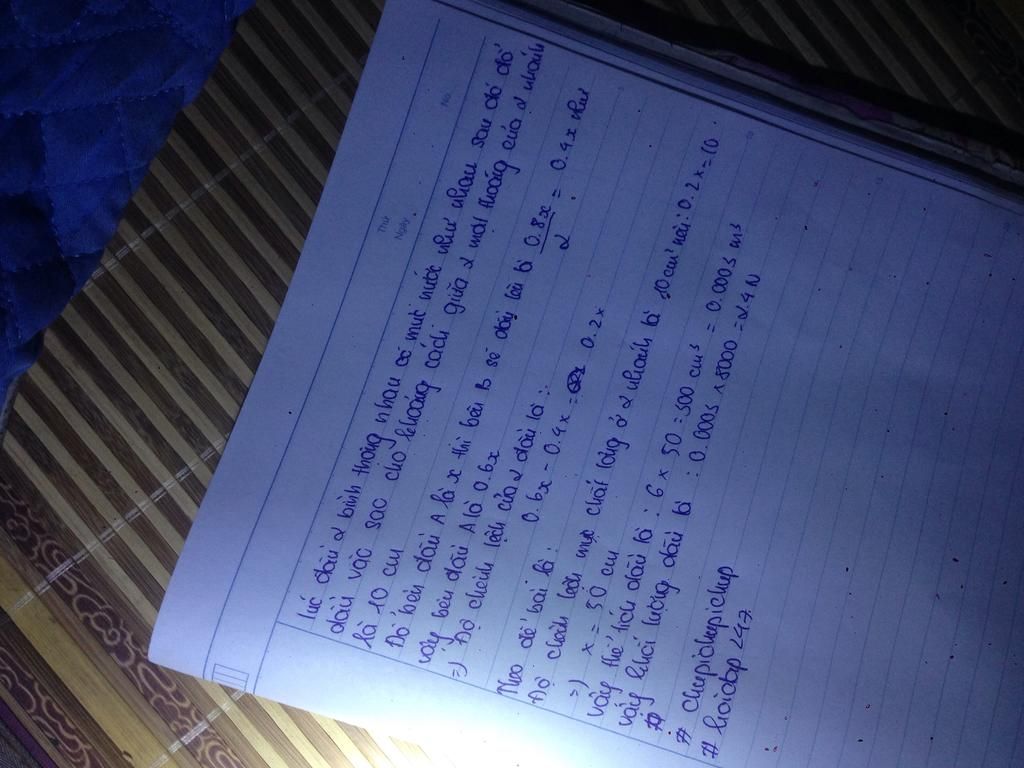 Thứ
Ngày
No.
lúc đầu 2 bình thông nhau có mực nước như nhau sau đó đổ
dầu vào sao cho khoảng cách giữa 2 mặt thoáng của 2 nhánh
là 10 cm
Đổ bên dầu A là x thì bên B sẽ dầu lại là 0.8x / 2 = 0.4x như
vậy bên dầu A là 0.6x
=> Độ chênh lệch của 2 dầu là :
Theo đề bài là : 0.6x - 0.4x = 0.2x
Độ chênh lệch mực chất lỏng ở 2 nhánh là 10cm nên : 0.2x = 10
=> x = 50 cm
vậy thể tích dầu là : 6 x 50 = 300 cm³ = 0.0003 m³
vậy khối lượng dầu là : 0.0003 x 8000 = 2.4 N
# chupichupichup
# hoidap247